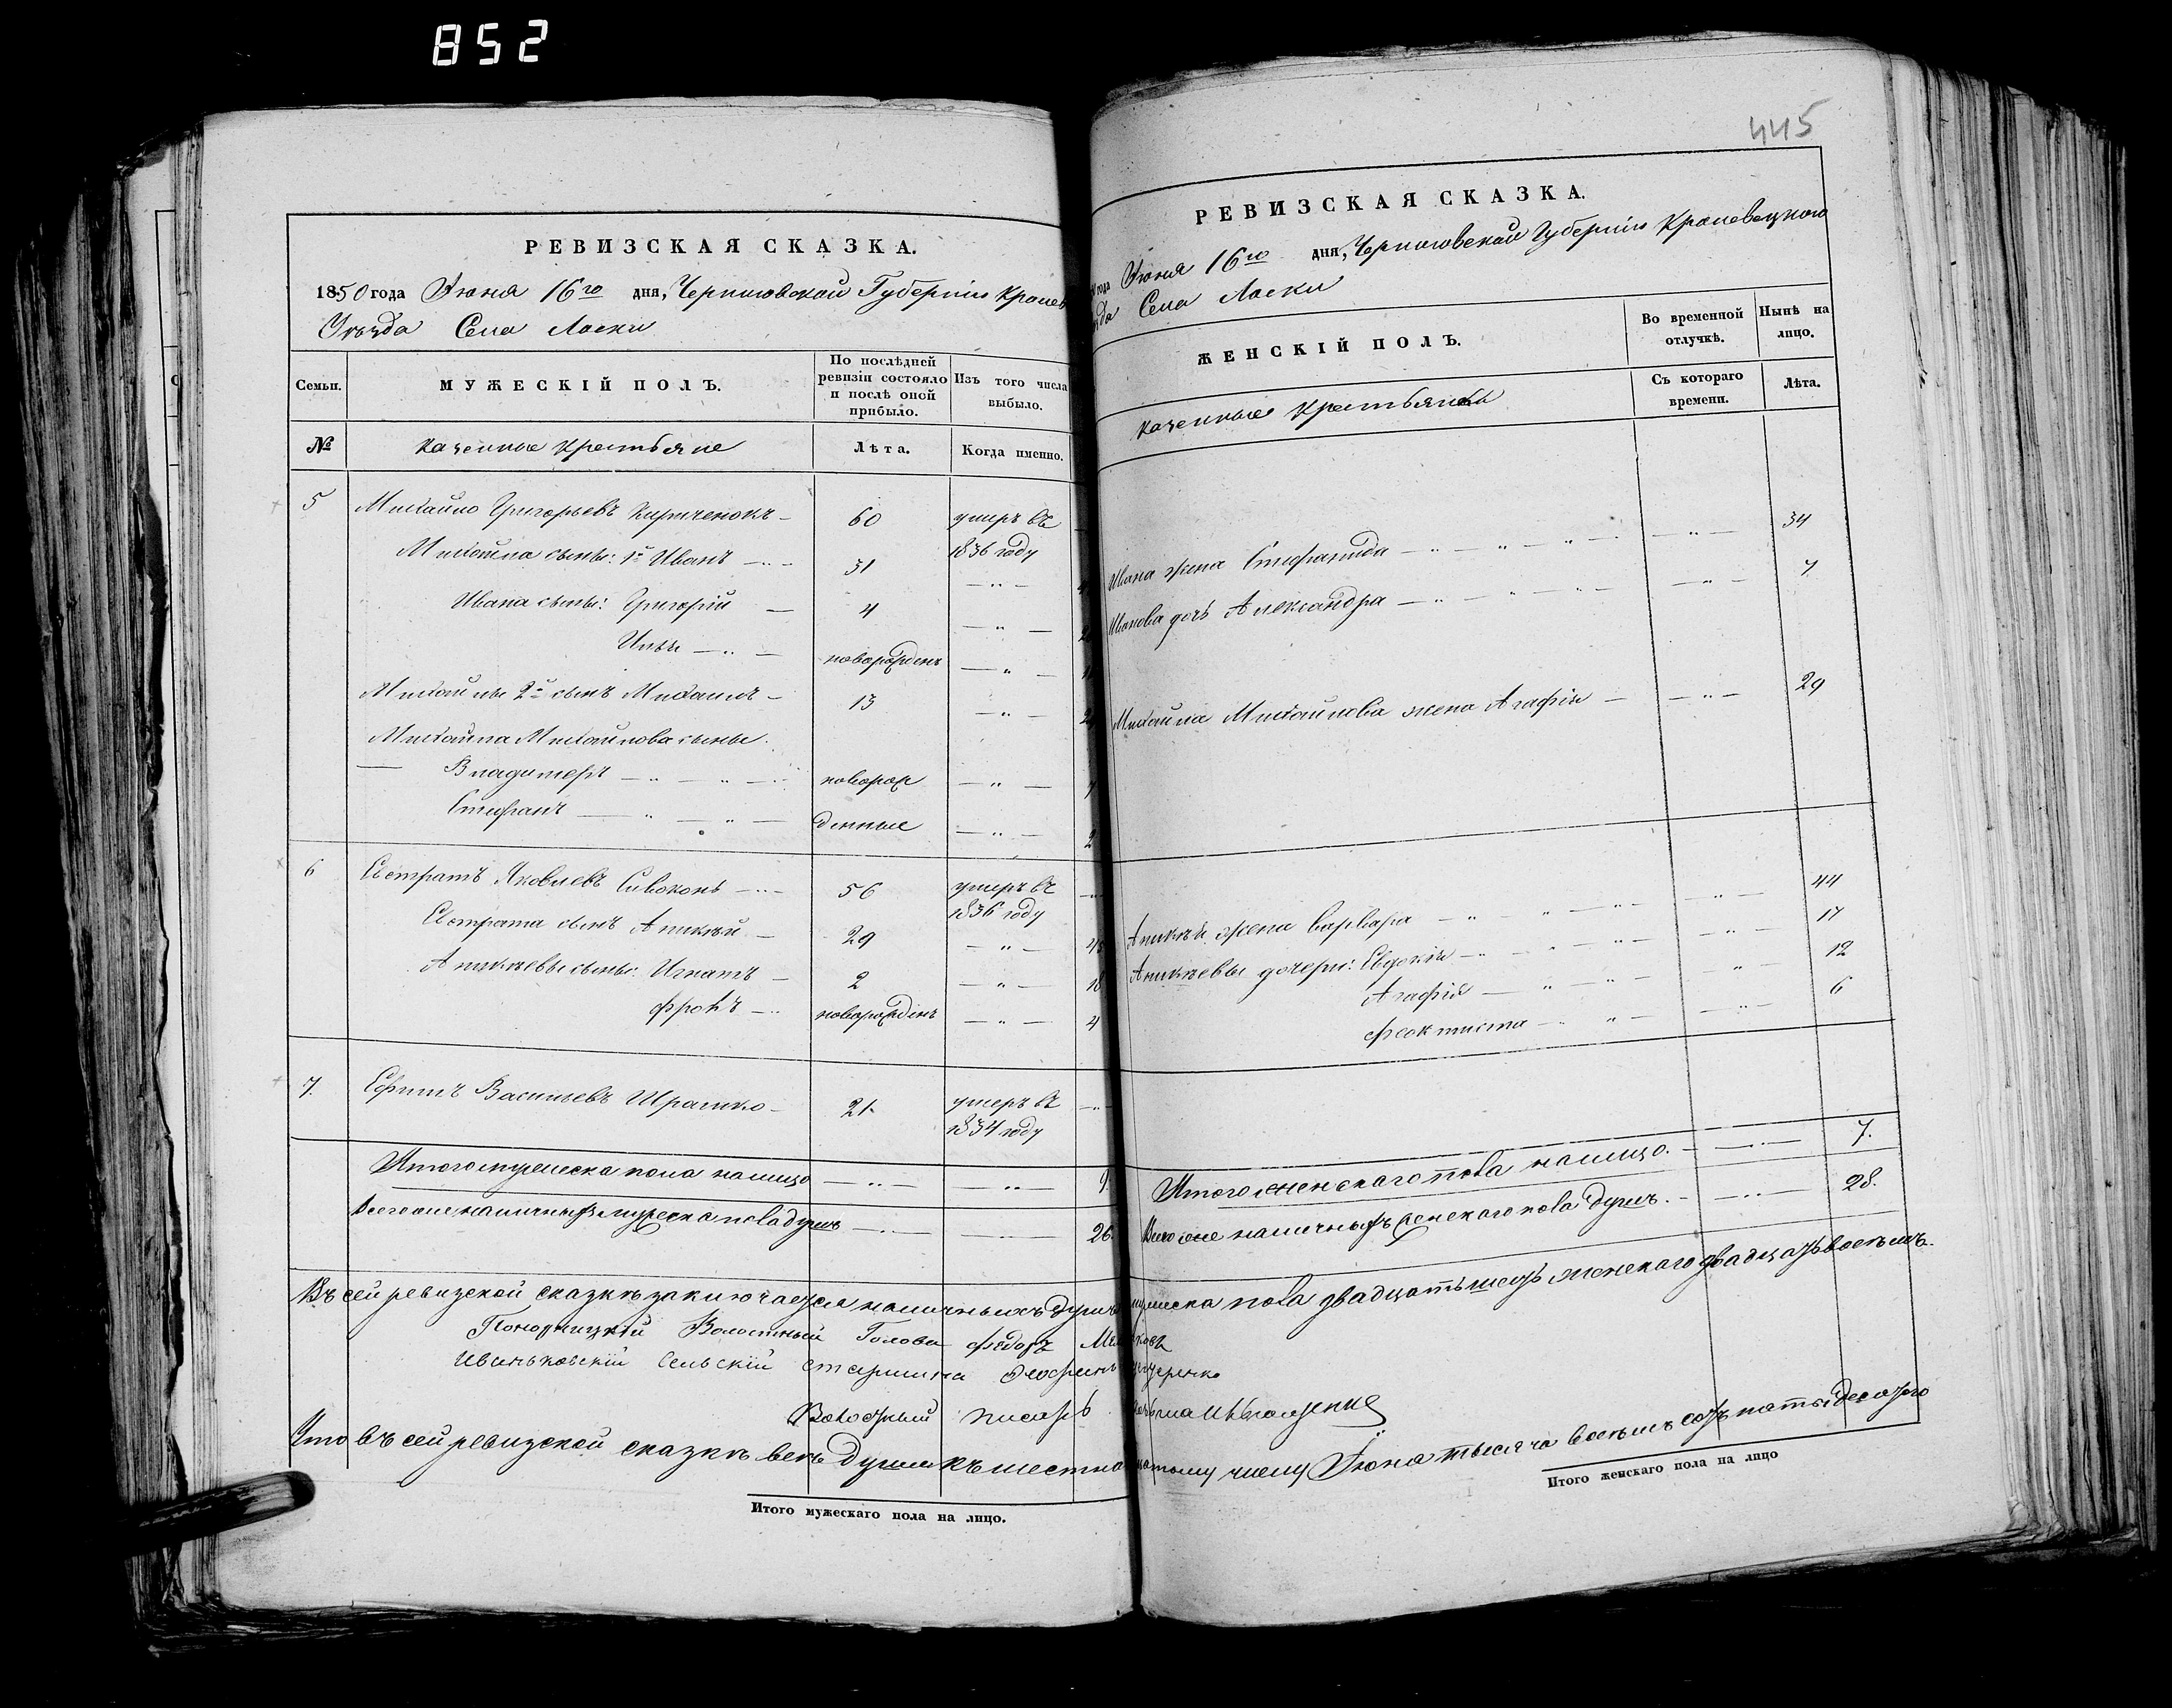 852
РЕВИЗСКАЯ СКАЗКА.
1850 года Июня 16го дня, Черниговской Губерніи Кролев
Уѣзда Села Ласки
Семьи.
МУЖЕСКІЙ ПОЛЪ.
По послѣдней ревизіи состояло и послѣ оной прибыло.
Изъ того числа выбыло.
№
казенные крестьяне
Лѣта.
Когда именно.
5 Михайло Григорьевъ Кириченокъ 60 умеръ въ 1836 году
Михайла сыны: 1й Иванъ 31
Ивана сыны: Григорій 4
Илья новорожденъ
Михайлы 2й сынъ Михаилъ 13
Михайла Михайлова сыны
Владимеръ новорож
Стефанъ денные 2
6 Евстратъ Яковлевъ Сивоконь 56 умеръ въ 1836 году
Евстрата сынъ Аникѣй 29
Аникѣевы сыны: Игнатъ 2 18
Фролъ новорожденъ 4
7. Ефимъ Васильевъ Шрамко 21 умеръ въ 1834 году
Итого мужеска пола налицо 9
Всего же наличныхъ мужеска пола душъ 26.
445
РЕВИЗСКАЯ СКАЗКА.
года Июня 16го дня, Черниговской Губерніи Кролевецкого
Села Ласки
ЖЕНСКІЙ ПОЛЪ.
Во временной отлучкѣ.
Нынѣ на лицо.
казенные крестьянки
Съ котораго времени.
Лѣта.
Ивана жена Стефанида 34
Иванова дочь Александра 7
Михайла Михайлова жена Агафія 29
Аникѣя жена Варвара 44
Аникѣевы дочери: Евдокія 17
Агафія 12
Феоктиста 6
Итого женскаго пола налицо. 7.
Всего же наличныхъ женскаго пола душъ. 28.
Въ сей ревизской сказкѣ заключается наличныхъ душъ мужеска пола двадцать шесть женскаго двадцать восемъ.
Волостный Голова Федоръ
Сельскій старшина
Волостный писарь
Что въ сей ревизской сказкѣ всѣ души къ шестнадцатому числу Июня тысяча восемъ сотъ пятьдесятого
Итого мужескаго пола на лицо.
Итого женскаго пола на лицо